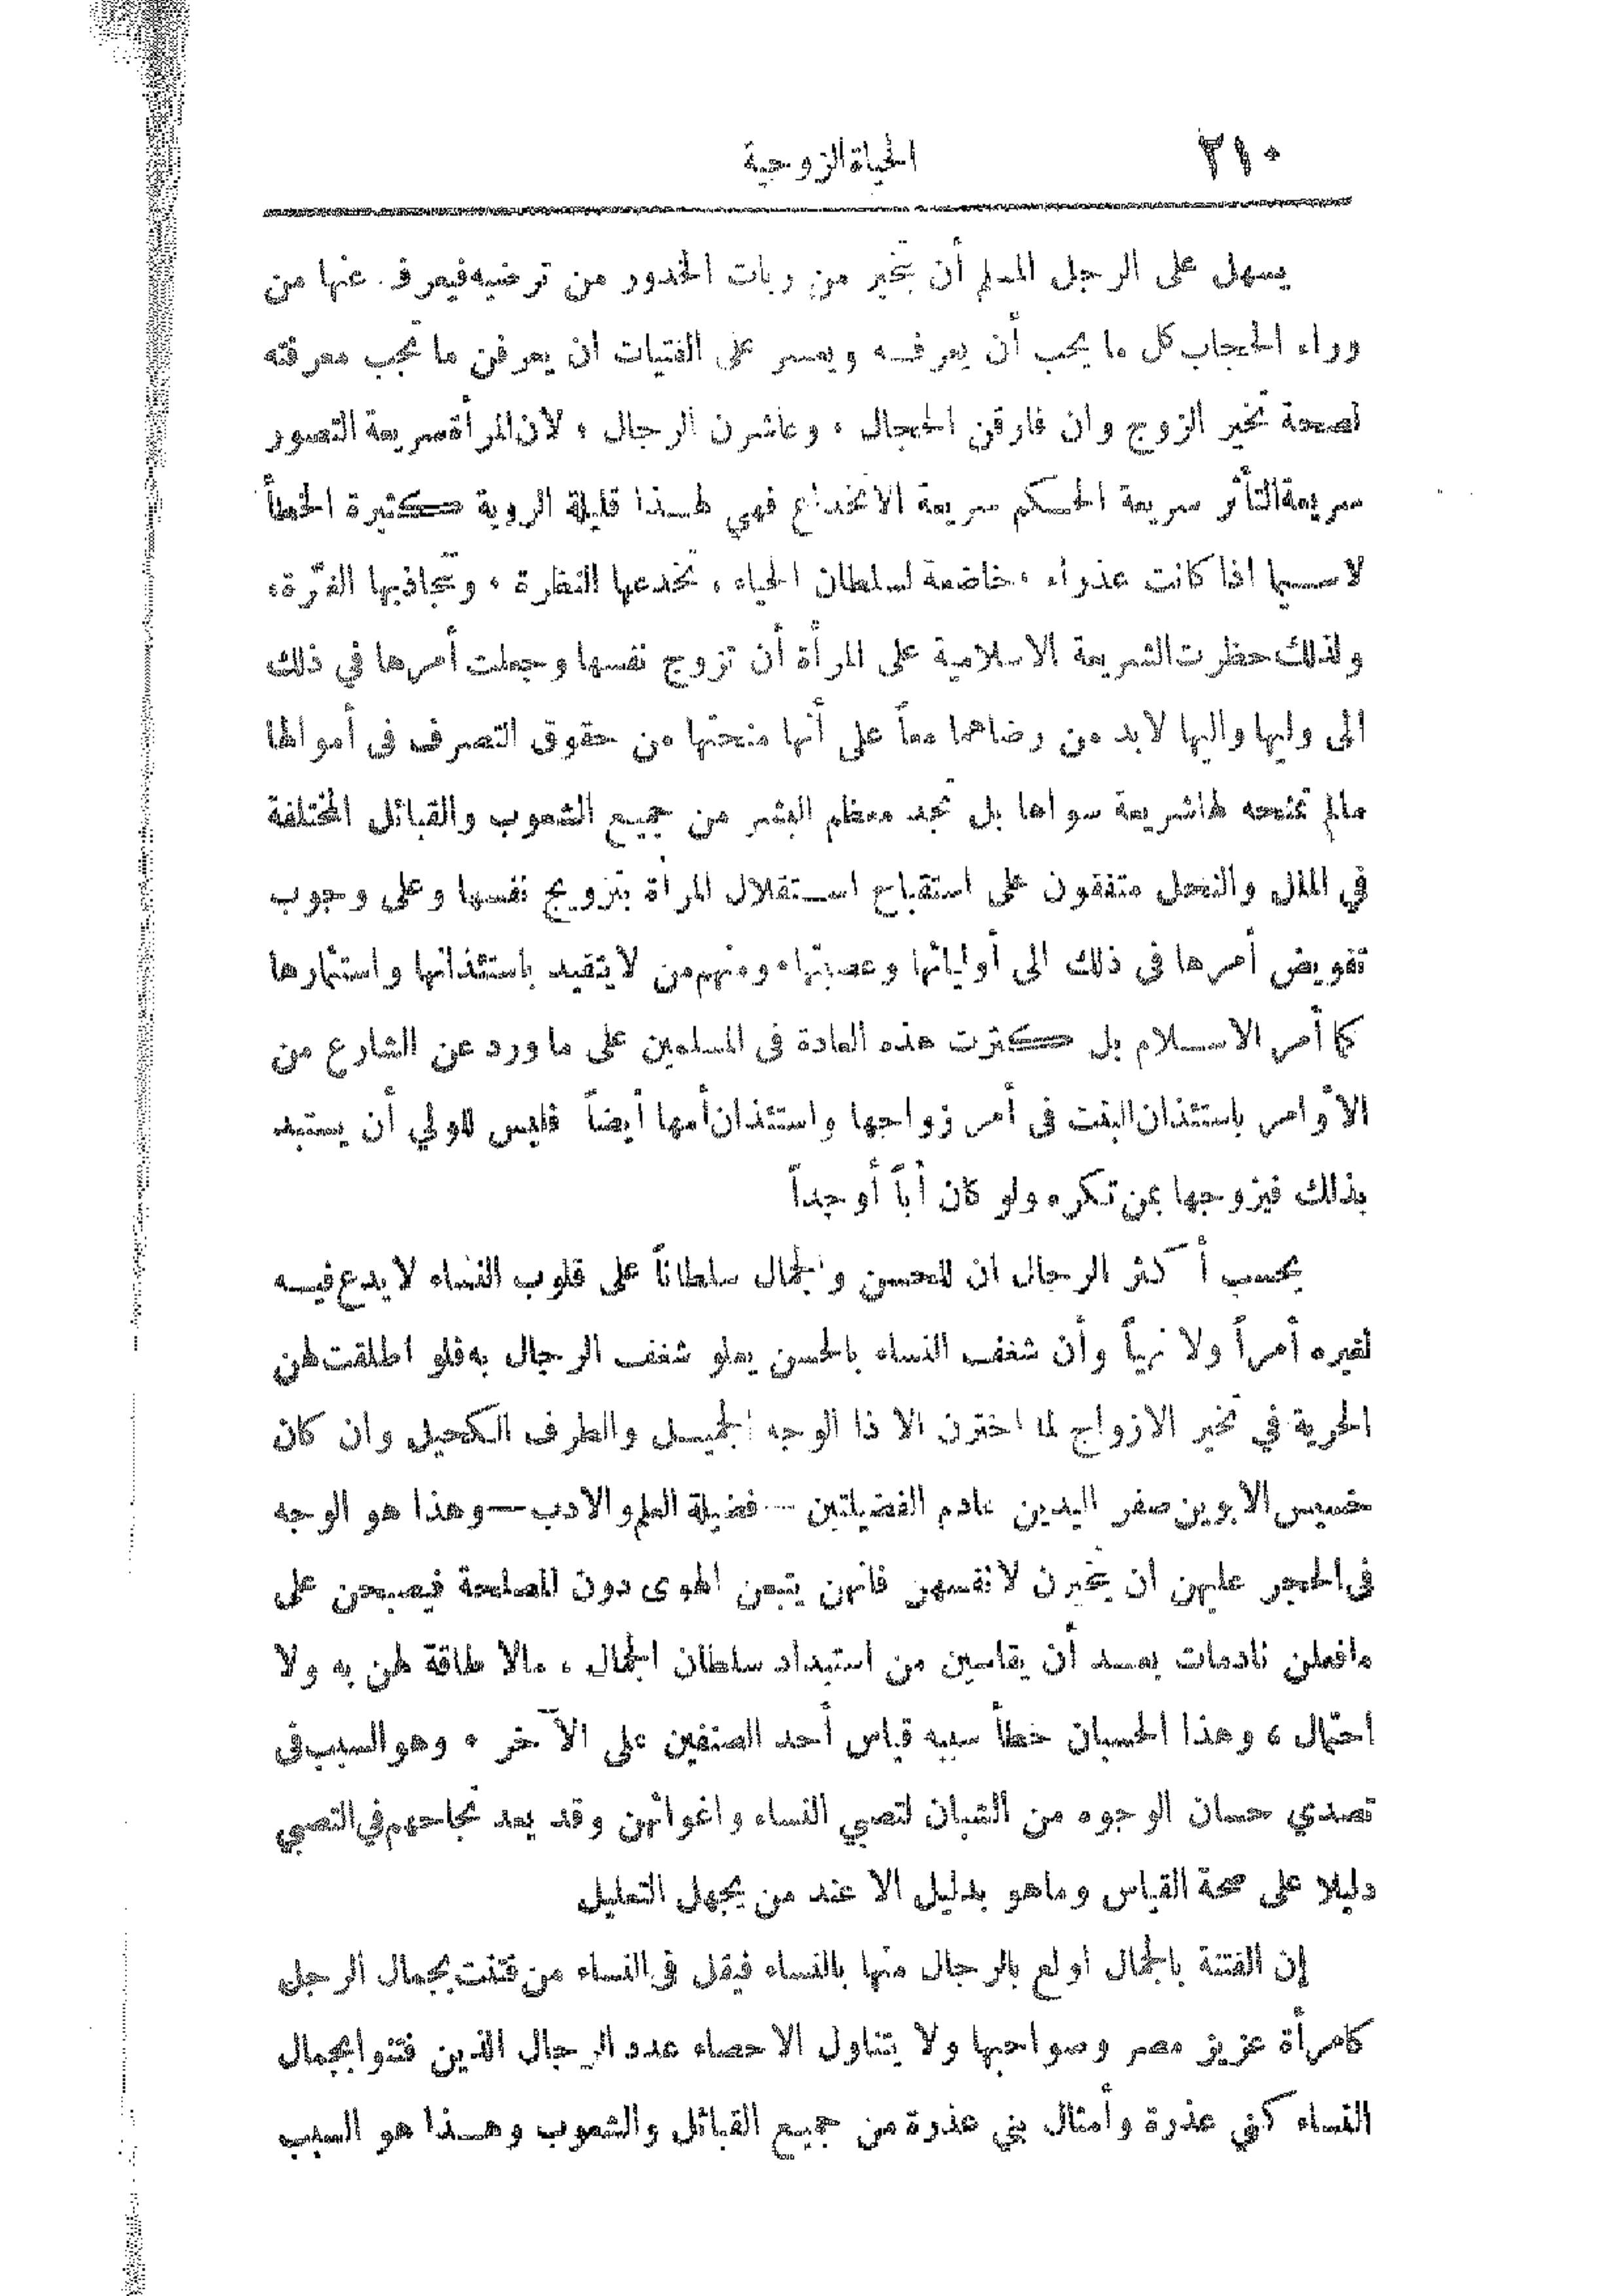 ٢١٠
الحياة الزوجية
يسهل على الرجل المسلم أن يتخير من ربات الخدور من ترضيه فيعرف عنها من
وراء الحجاب كل ما يجب أن يعرفه ويعسر على الفتيات ان يعرفن ما تجب معرفته
لصحة تخير الزوج وان فارقن الحجال ، وعاشرن الرجال ، لان المرأة سريعة التصور
سريعة التأثر سريعة الحكم سريعة الانخداع فهي لهذا قليلة الروية كثيرة الخطأ
لاسيما اذا كانت عذراء ، خاضعة لسلطان الحياء ، تخدعها النظرة ، وتجاذبها الغرّة،
ولذلك حظرت الشريعة الاسلامية على المرأة أن تزوج نفسها وجعلت أمرها في ذلك
الى وليها واليها لا بد من رضاهما معاً على أنها منحتها من حقوق التصرف في أموالها
مالم تمنحه لها شريعة سواها بل تجد معظم البشر من جميع الشعوب والقبائل المختلفة
في الملل والنحل متفقون على استقباح استقلال المرأة بتزويج نفسها وعلى وجوب
تفويض أمرها في ذلك الى أوليائها وعصبتها، ومنهم من لا يتقيد باستئذانها واستئمارها
كما أمر الاسلام بل كثرت هذه العادة في المسلمين على ما ورد عن الشارع من
الأوامر باستئذان البنت في أمر زواجها واستئذان أمها أيضاً فليس للولي أن يستبد
بذلك فيزوجها بمن تكره ولو كان أباً أو جداً
يحسب أكثر الرجال ان للحسن والجمال سلطاناً على قلوب النساء لا يدع فيه
لغيره أمراً ولا نهياً وأن شغف النساء بالحسن يعلو شغف الرجال به فلو اطلقت لهن
الحرية في تخير الازواج لما اخترن الا ذا الوجه الجميل والطرف الكحيل وان كان
خسيس الابوين صفر اليدين عادم الفضيلتين — فضيلة العلم والادب — وهذا هو الوجه
في الحجر عليهن ان يتخيرن لانفسهن فانهن يتبعن الهوى دون المصلحة فيصبحن على
مافعلن نادمات بعد أن يقاسين من استبداد سلطان الجمال ، مالا طاقة لهن به ولا
احتمال ، وهذا الحسبان خطأ سببه قياس أحد الصنفين على الآخر . وهو السبب في
تصدي حسان الوجوه من الشبان لتصبي النساء واغوائهن وقد يعد نجاحهم في التصبي
دليلا على صحة القياس وماهو بدليل الا عند من يجهل التعليل
إن الفتنة بالجمال أولع بالرجال منها بالنساء فيقل في النساء من فتنت بجمال الرجل
كامرأة عزيز مصر وصواحبها ولا يتناول الاحصاء عدد الرجال الذين فتنوا بجمال
النساء كبني عذرة وأمثال بني عذرة من جميع القبائل والشعوب وهذا هو السبب